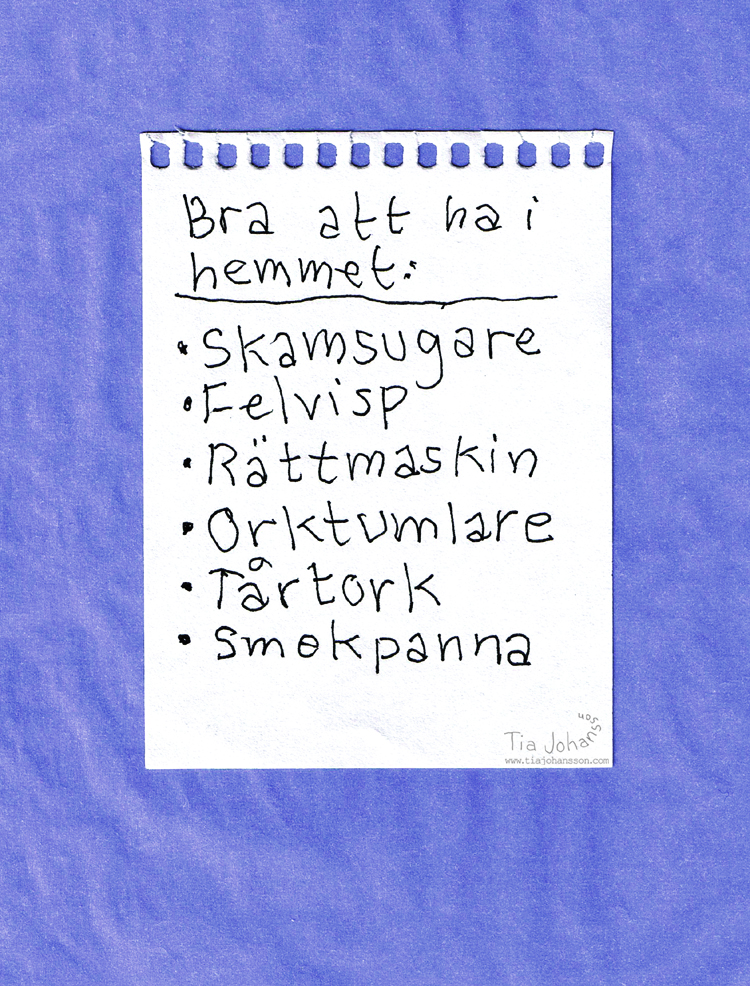 Bra att ha i
hemmet:
• Skamsugare
• Felvisp
• Rättmaskin
• Orktumlare
• Tårtork
• Smekpanna
Tia Johansson
www.tiajohansson.com